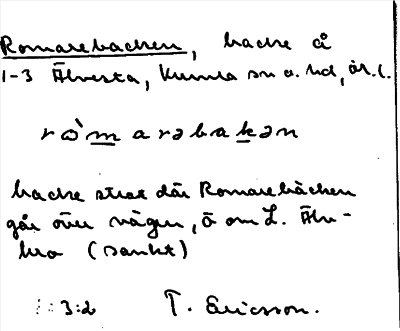 Romarebacken, backe å
1-3 Älvesta, Kumla sn o. hd, Ör. l.
rò̀marəbakən
backe strax där Romarebäcken
går över vägen, ö om L. Älv-
(sankt)
3:2 T. Ericsson.